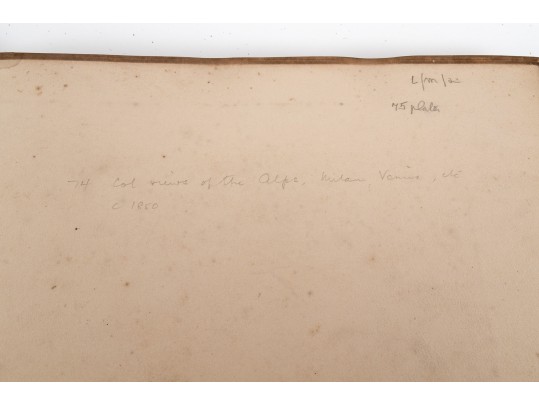 L/m/
75 plates
74 Col views of the Alps, Milan, Venice, etc
c 1860